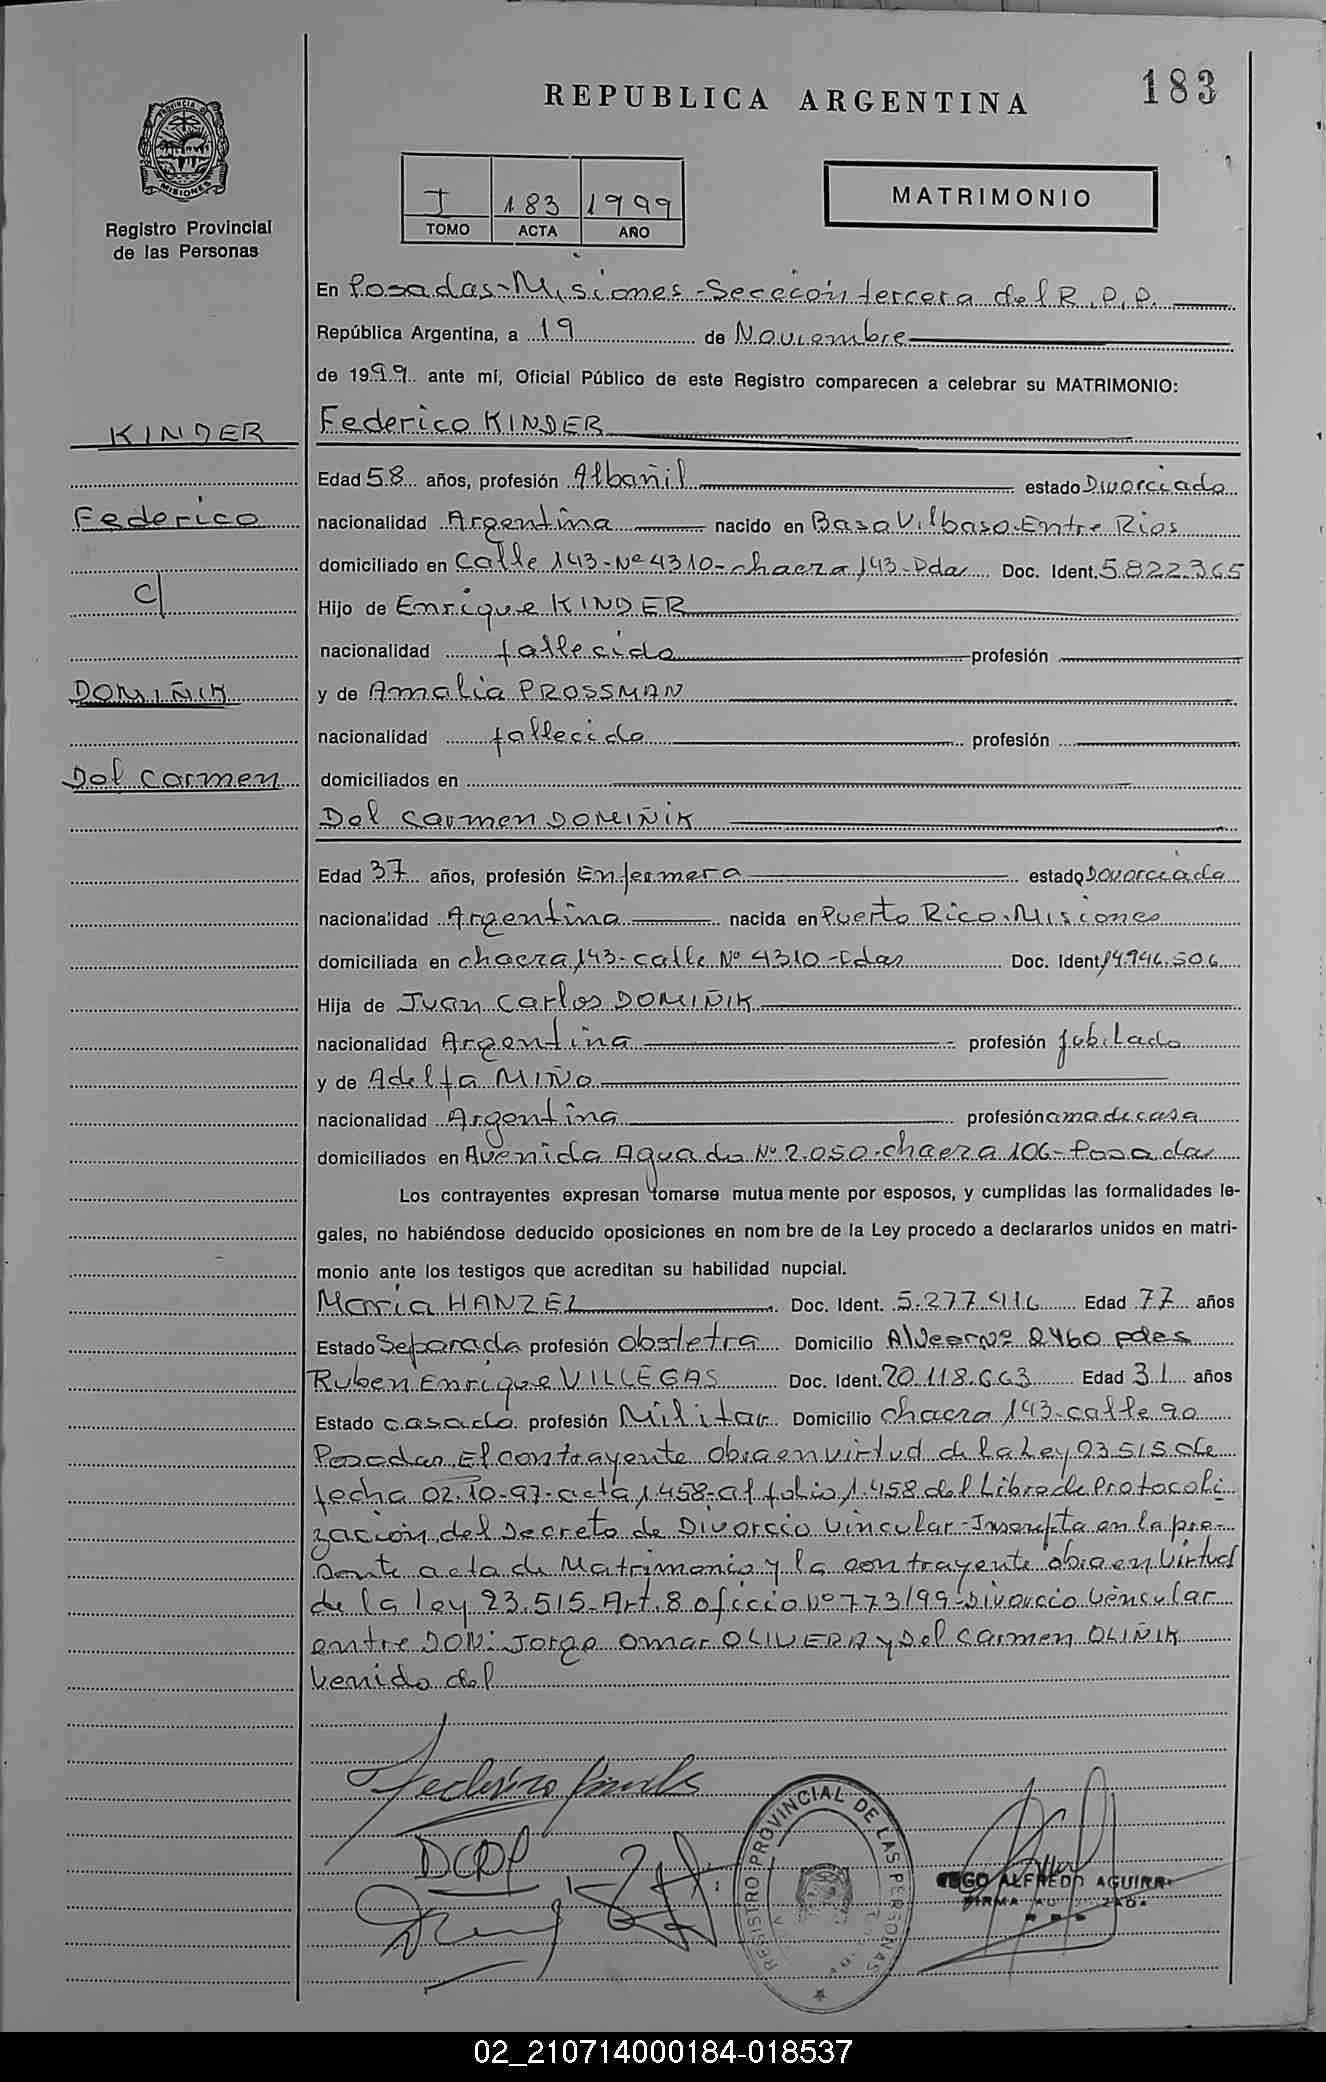 183
REPUBLICA ARGENTINA
PROVINCIA DE MISIONES
Registro Provincial
de las Personas
I 183 1999
TOMO ACTA AÑO
MATRIMONIO
En Posadas-Misiones-Sececión tercera del R.P.P.
República Argentina, a 19 de Noviembre
de 1999 ante mí, Oficial Público de este Registro comparecen a celebrar su MATRIMONIO:
KINDER
Federico
c/
DOMIÑIK
Del Carmen
Federico KINDER
Edad 58 años, profesión Albañil estado Divorciado
nacionalidad Argentina nacido en BasoVilbaso-Entre Rios
domiciliado en Calle 143-Nº4310-chacra 143-Pdas Doc. Ident. 5.822.365
Hijo de Enrique KINDER
nacionalidad fallecido profesión
y de Amalia PROSSMAN
nacionalidad fallecido profesión
domiciliados en
Del Carmen DOMIÑIK
Edad 37 años, profesión Enfermera estado Divorciada
nacionalidad Argentina nacida en Puerto Rico-Misiones
domiciliada en chacra 143-calle Nº 4310-Pdas Doc. Ident 14.946.506
Hija de Juan Carlos DOMIÑIK
nacionalidad Argentina profesión jubilado
y de Adelfa MIÑO
nacionalidad Argentina profesión ama de casa
domiciliados en Avenida Aguado Nº 2.050-chacra 106-Posadas
Los contrayentes expresan tomarse mutua mente por esposos, y cumplidas las formalidades le-
gales, no habiéndose deducido oposiciones en nom bre de la Ley procedo a declararlos unidos en matri-
monio ante los testigos que acreditan su habilidad nupcial.
Maria HANZEL Doc. Ident. 5.277.416 Edad 77 años
Estado Separada profesión Obstetra Domicilio Alvear Nº 2460 pdas
Ruben Enrique VILLEGAS Doc. Ident. 20.118.663 Edad 31 años
Estado casado profesión Militar Domicilio chacra 143-calle 90
Posadas El contrayente obra en virtud de la Ley 23.515 de
fecha 02.10-97-acta 1.458-al folio 1.458 del Libro de Protocoli
zación del Decreto de Divorcio Vincular-Inscripta en la pre-
sente acta de Matrimonio y la contrayente obra en Virtud
de la ley 23.515-Art.8 oficio Nº773/99-Divorcio Vincular
entre DON: Jorge Omar OLIVERA y Del Carmen OLIÑIK
Venido del
REGISTRO PROVINCIAL DE LAS PERSONAS
ALFREDO AGUIRRE
02_210714000184-018537